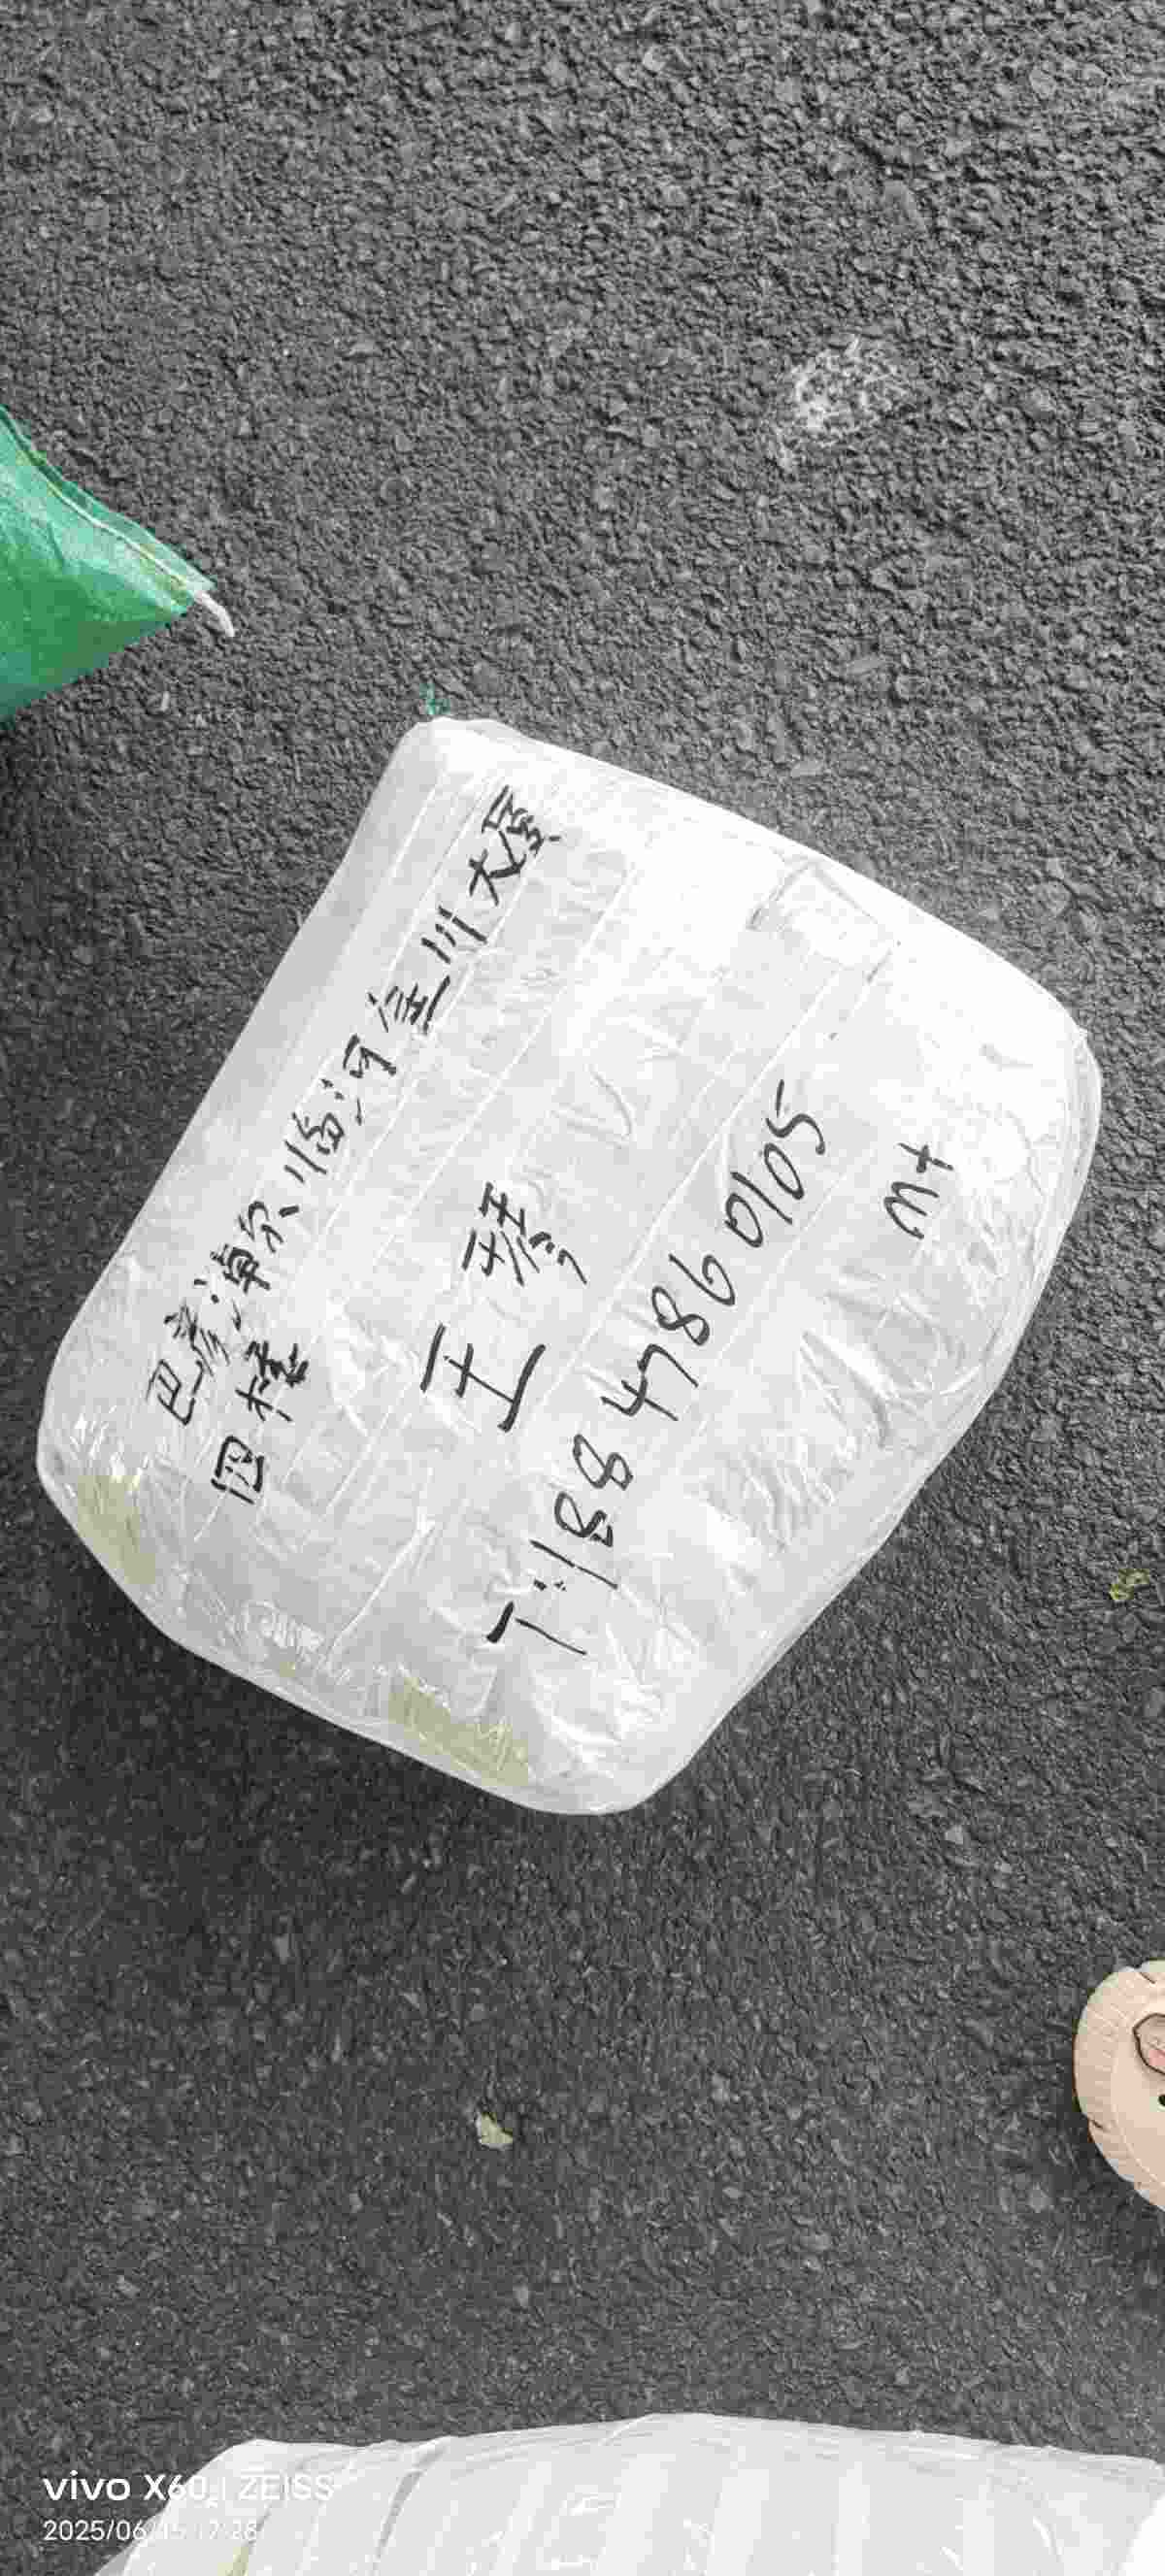 巴彦淖尔临河金川大厦
四楼
王琴
T:18847860105
U+
vivo X60 | ZEISS
2025/06/15 17:26